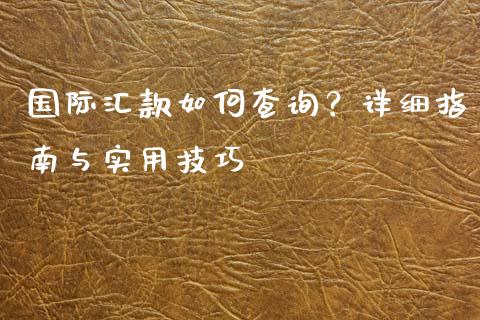 国际汇款如何查询？详细指
南与实用技巧